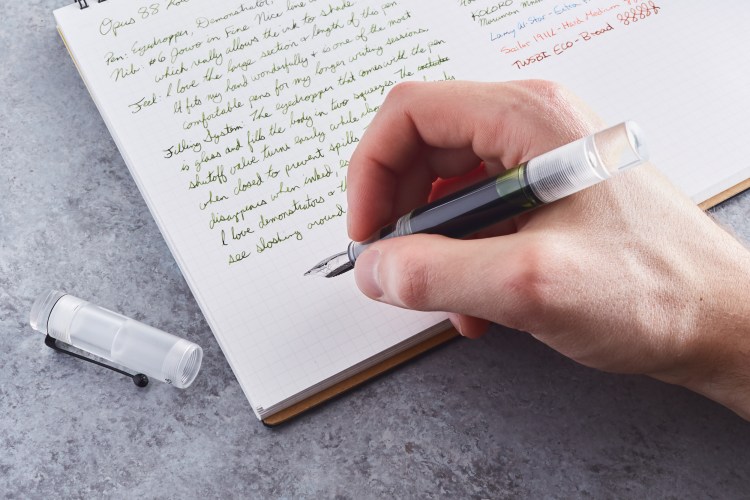 Opus 88
Pen: Eyedropper, Demonstrator,
Nib: #6 Jowo in Fine. Nice line
which really allows the ink to shade
Feel: I love the large section & length of this pen
It fits my hand wonderfully & is one of the most
comfortable pens for my longer writing seasons.
Filling System: The eyedropper that comes with the pen
is glass and fills the body in two squeezes. The
shutoff valve turns easily while
when closed to prevent spills
disappears when inked,
I love demonstrators &
see sloshing around
KOLORO
Monoman
Lamy Al-Star - Extra
Sailor 1911L - Hard Medium
TWSBI ECO - Broad